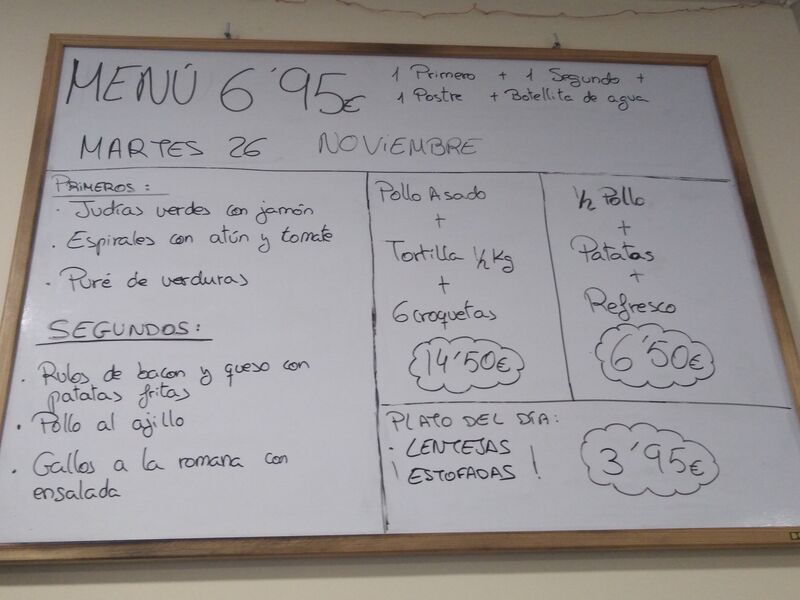 MENÚ 6'95€
1 Primero + 1 Segundo +
1 Postre + Botellita de agua
MARTES 26 NOVIEMBRE
PRIMEROS:
· Judías verdes con jamón
· Espirales con atún y tomate
· Puré de verduras
SEGUNDOS:
· Rulos de bacon y queso con
patatas fritas
· Pollo al ajillo
· Gallos a la romana con
ensalada
Pollo Asado
+
Tortilla 1/2 Kg
+
6 croquetas
14'50€
1/2 Pollo
+
Patatas
+
Refresco
6'50€
PLATO DEL DÍA:
· LENTEJAS
¡ ESTOFADAS !
3'95€